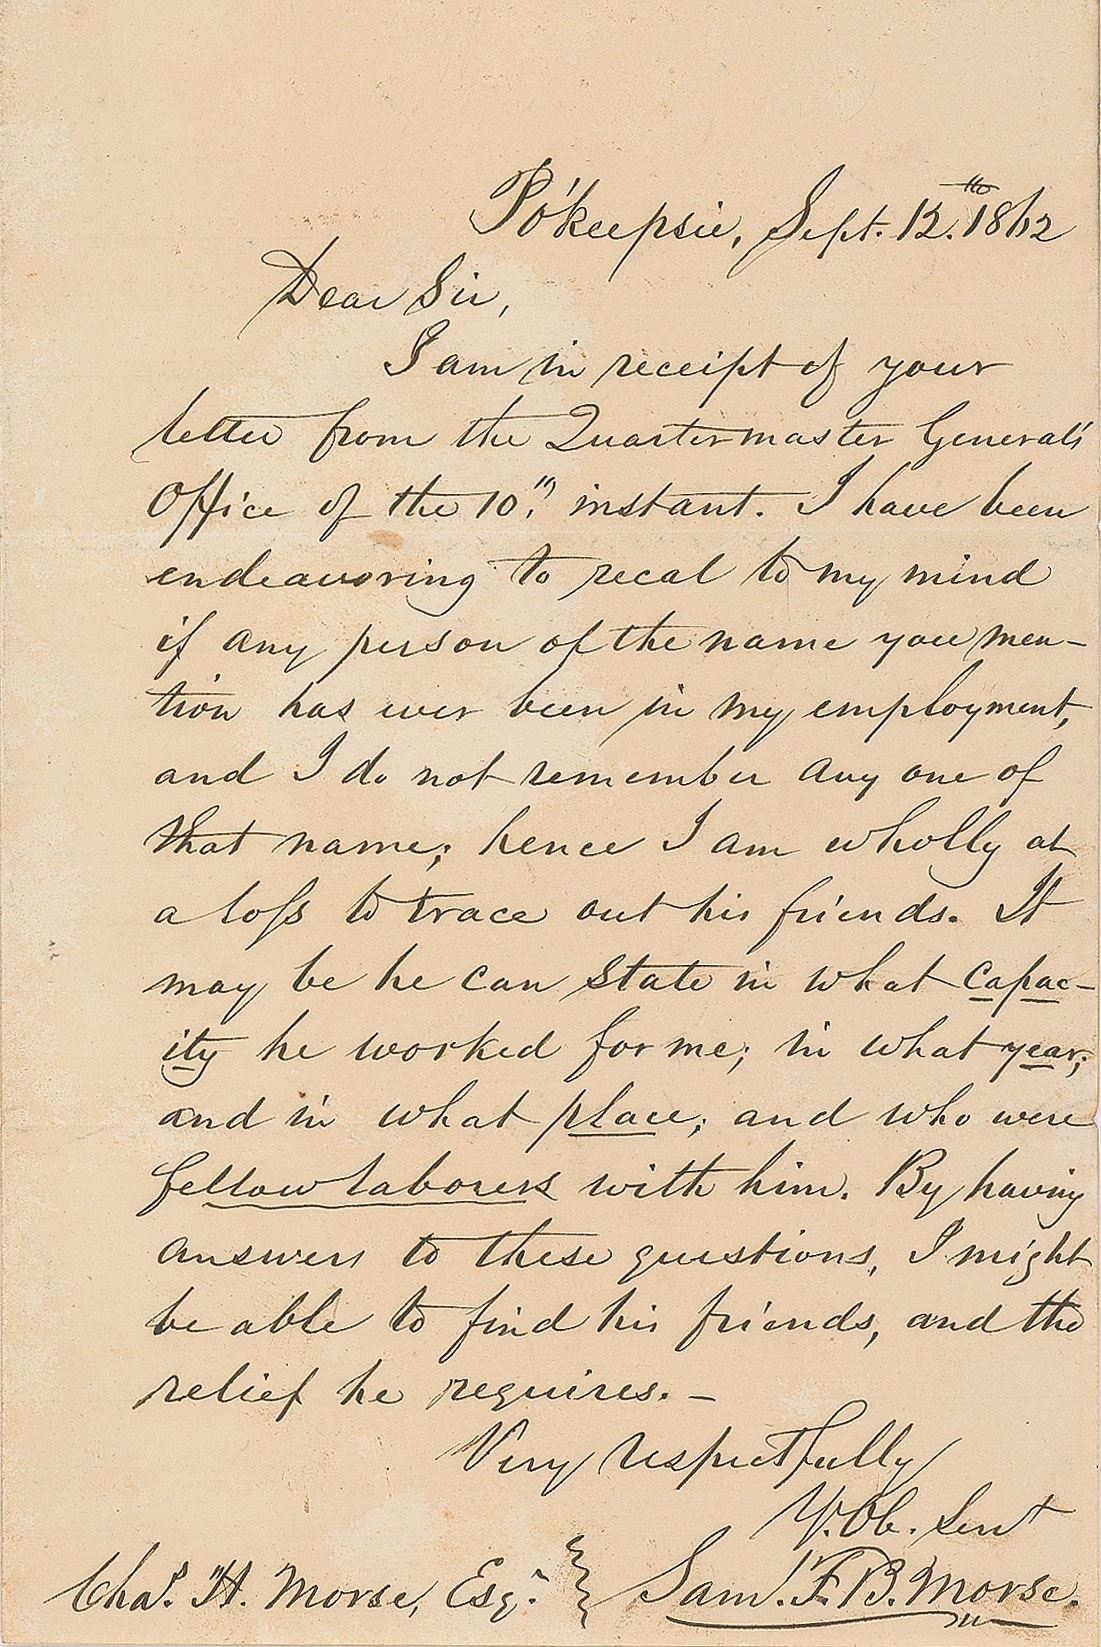 Po'keepsie, Sept. 12.th 1862
Dear Sir,
I am in receipt of your
letter from the Quartermaster General's
Office of the 10", instant. I have been
endeavoring to recal to my mind
if any person of the name you men-
tion has ever been in my employment,
and I do not remember any one of
that name; hence I am wholly at
a loss to trace out his friends. It
may be he can state in what capac-
ity he worked for me; in what year;
and in what place; and who were
fellow laborers with him. By having
answers to these questions, I might
be able to find his friends, and the
relief he requires. —
Very respectfully
Y. Ob. Servt
Chas. H. Morse, Esqr. Saml. F. B. Morse.